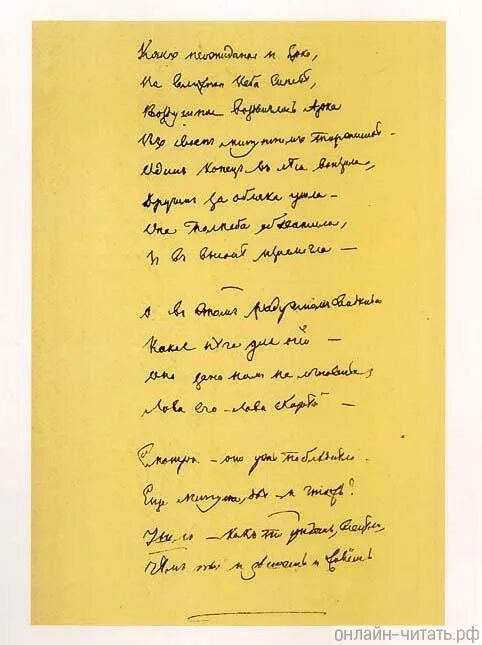 Какъ неожиданно и ярко,
На влажной неба синевѣ,
Воздушная воздвиглась Арка
Въ своемъ минутномъ торжествѣ –
Одинъ конецъ въ лѣса вонзила,
Другимъ за облака ушла –
Она полнеба обхватила,
И въ высотѣ изнемогла –
О въ этомъ радужномъ видѣньи
Какая нѣга для очей –
Оно дано нам на мгновенье,
Лови его – лови скорѣй –
Смотри – оно ужь поблѣднѣло –
Еще минута, двѣ – и чтожь?
Ушло – какъ то уйдетъ, всецѣло,
Чѣмъ ты и дышешь и живёшь
онлайн-читать.рф